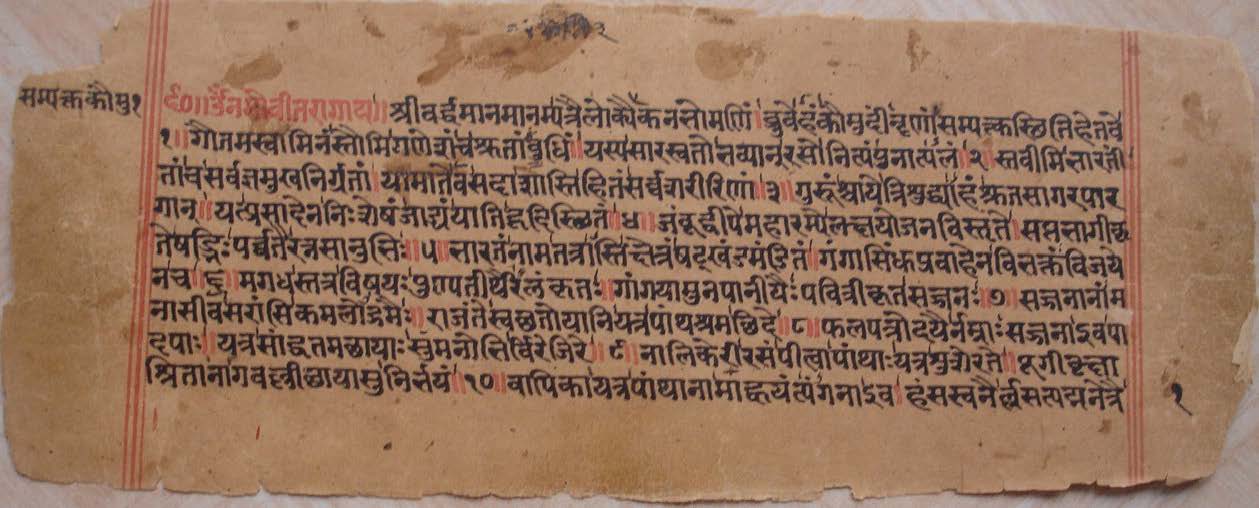 सम्यक्तकौमु१
॥र्द०॥ॐनमोवीतरागाय॥श्रीवर्द्धमानमानम्यत्रैलोक्यैकनभोमणिं।ब्रुवेहंकौमुदींनृणांसम्यत्क्तस्थितिहेतवे
१॥गौतमस्वामिनंस्तौमिगणेशंचश्रुतांबुधिं॥यस्यसारस्वतो नित्यंपुनात्यलं॥२॥स्तवीमिभारतीं
तांचसर्वज्ञमुखनिर्गतां।यामातैवसदाशास्तिहितंसर्वशरीरिणां॥३॥गुरूंश्चायेत्रिशुद्ध्याहंश्रुतसागरपार
गान्॥यत्प्रसादेननिःशेषंजाड्यंयातिहृदिस्थितं॥४॥जंबूद्वीपेमहारम्येलक्षयोजनविस्तृते।सप्तभागीकृ
तेषड्भिःपर्वतैरत्नसानुभिः॥५॥भारतंनामतत्रास्तिक्षेत्रंषट्खंडमंडितं।गंगासिंधुप्रवाहेनविभक्तंविजये
नच॥६॥मगधस्तत्रविषयःपुण्यतीर्थैरलंकृतः।गांगयामुनपानीयैःपवित्रीकृतसज्जनः॥७॥सज्जनानांम
नांसीवसरांसिकमलोद्गमैः॥राजंतेस्वछतोयानियत्रपांथश्रमछिदे॥८॥फलपत्रोदयैर्नम्राःसज्जनाइवपा
दपाः॥यत्रसांद्रतमछायाःसुमनोभिर्विरेजिरे॥९॥नालिकेरीरसंपीत्वापांथाःयत्रशेरते।पूगीवृक्षा
श्रितानागवल्लीछायासुनिर्भयं॥१०॥वापिकायत्रपांथानामाह्वयंत्यंगनाइव।हंसस्वनैर्लसत्पद्मनेत्रै
१